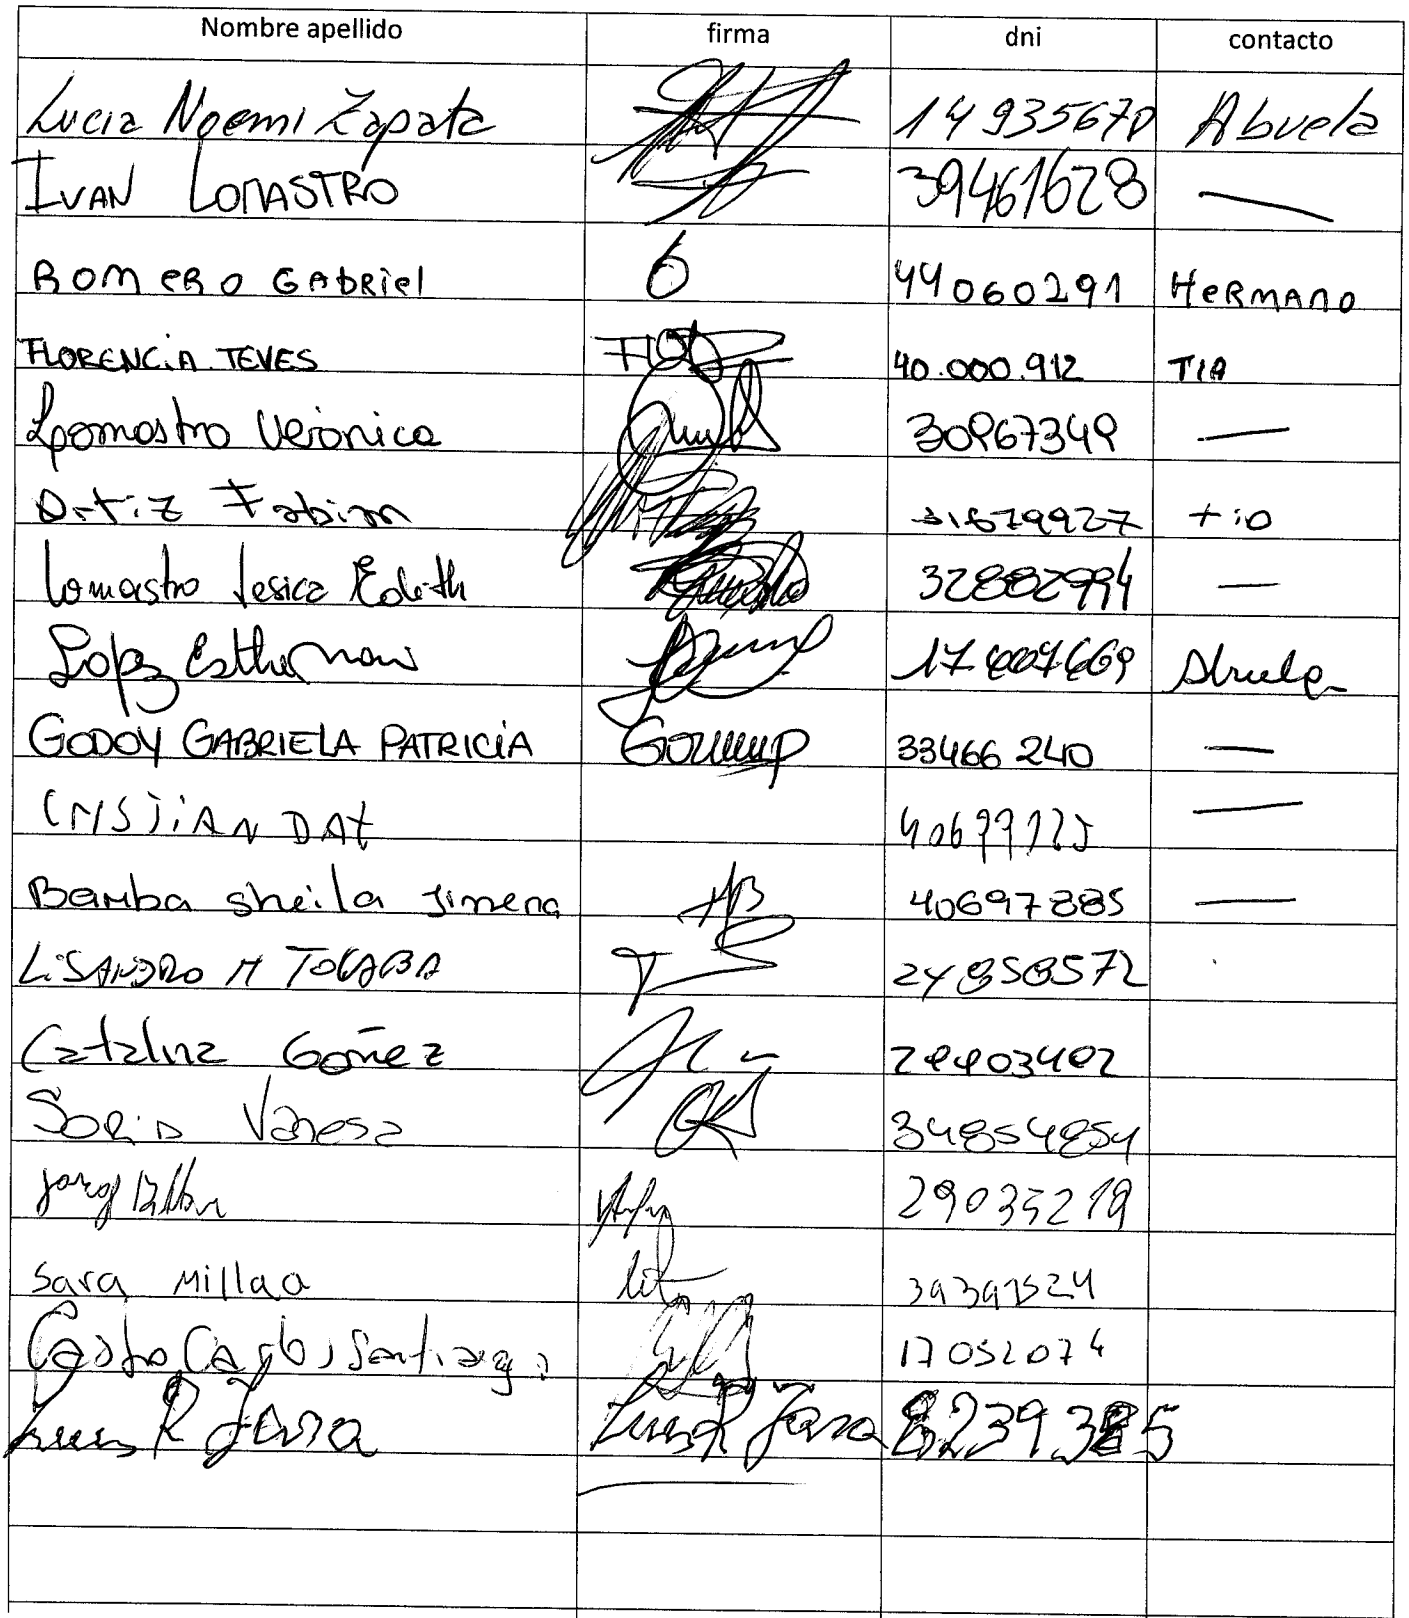 Nombre apellido firma dni contacto
Lucia Noemi Zapata 14935670 Abuela
IVAN LOMASTRO 39461628 —
ROMERO GAbRiel 6 44060291 HeRMANO
FLORENCiA.TEVES FLOR 40.000.912 TIA
Lomastro Veronica 30967349 —
Ortiz Fabian 31679927 tio
Lomastro Jesica Edith 32882994 —
Lopez Esther Abuela
GODOY GABRIELA PATRICIA 33466240 —
CRISTIAN DAT —
Bamba sheila Jimena 40697885 —
LiSANDRO M TOLABA 24858572
Catalina Gomez
Soria Vanesa 34854854
29035219
Sara Millao 39391524
Castro Carlos Santiago 17052074
Luis R Jara Luis R Jara